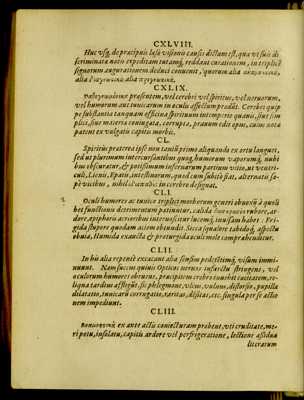 CXLVIII.
Huc vsq; de præcipuis læsæ visionis causis dictum est, quæ vt suis di
scriminata notis expeditam tutamq; reddant curationem, in triplici
signorum augurationem deduci conuenit, quorum alia
alia alia
CXLIX.
præsentem, vel cerebri vel spiritus, vel neruorum,
vel humorum aut tunicarum in oculis affectum prodit. Cerebri quip
pe substantia tanquam officina spirituum intemperies quauis, siue sim
plici, siue materia coniugata, correpta, prauum edit opus, cuius nota
patent ex vulgatis capitis morbis.
CL.
Spiritus præterea ipse non tantum primo aliquando ex ortu langues,
sed ut plurimum intercursantium quoq; humorum vaporumq; nubi
bus obscuratur, & potissimum infernarum partium vitio, ut ventri-
culi, Lienis, Epatis, intestinorum, quod cum subitò fiat, alternatis sæ-
pè vicibus, nihil in cerebro designat.
CLI.
Oculi humores ac tunicæ triplici morborum genere obnoxii à quali
bet functionis detrimentum patiuntur, calida rubore, ar-
dore, epiphoris acrioribus internoscitur iucemq; inuisam habet: Fri-
gida stupore quodam aciem obtundit. Sicca squalore tabidoq; aspectu
obuia, Humida exaucta & præturgida oculi mole comprahenditur.
CLII.
In his alia repentè excæcant alia sensim pedetentimq; visum immi-
nuunt. Nam succus quiuis Opticis neruis infarctus stringens, vel
oculorum humores obrutens, præcipitem crebro inuehit cæcitatem, re-
liqua tardius affligūt, sic phlegmone, vlcus, vulnus, distorsio, pupillæ
dilatatio, tunicarū corrugatio, raritas, densitas, etc. singula per se actio
nem impediunt.
CLIII.
ex ante actis coniecturam præbent, vti cruditate, me-
ri potu, insolatu, capitis ardore vel perfrigeratione, lectione assidua
literarum